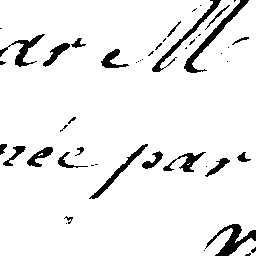 par M
née par